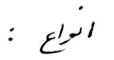 انواع :